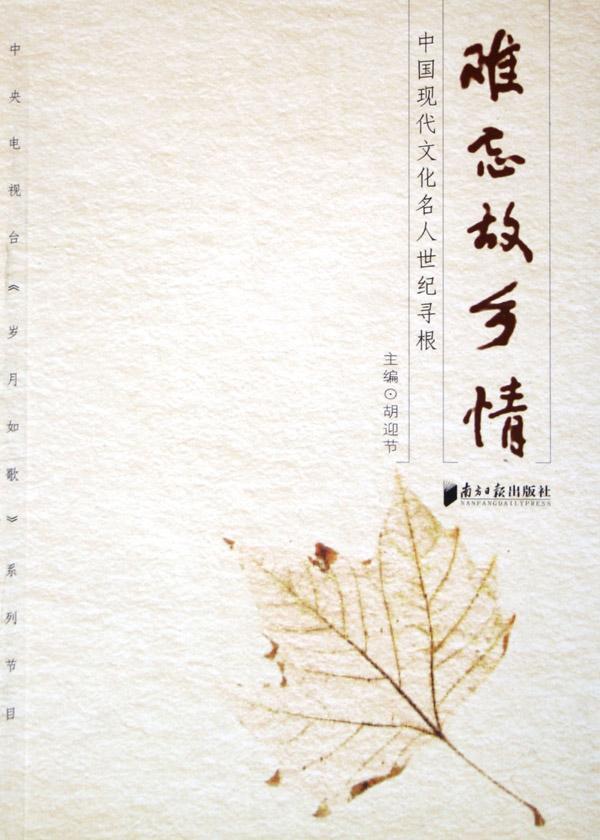 难忘故乡情
中国现代文化名人世纪寻根
主编⊙胡迎节
南方日报出版社
NANFANGDAILYPRESS
中央电视台《岁月如歌》系列节目